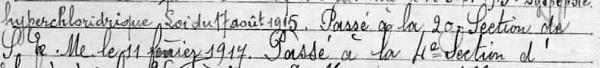 hyperchloridrique Loi du 17 août 1915. Passé à la 20e Section de
S. Me. le 11 février 1917. Passé à la 4e Section d'